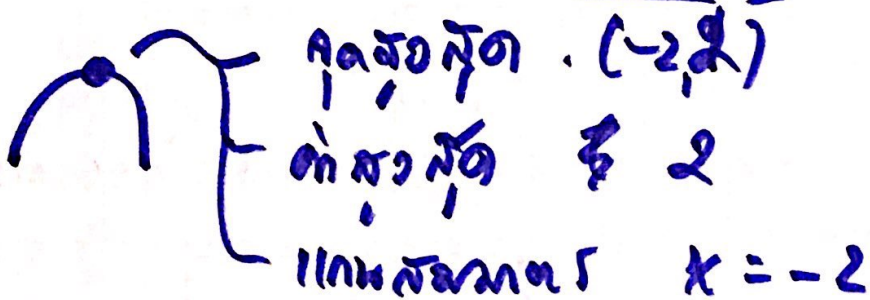 จุดสูงสุด . (-2,2)
ค่าสูงสุด 2
แกนสมมาตร x = -2